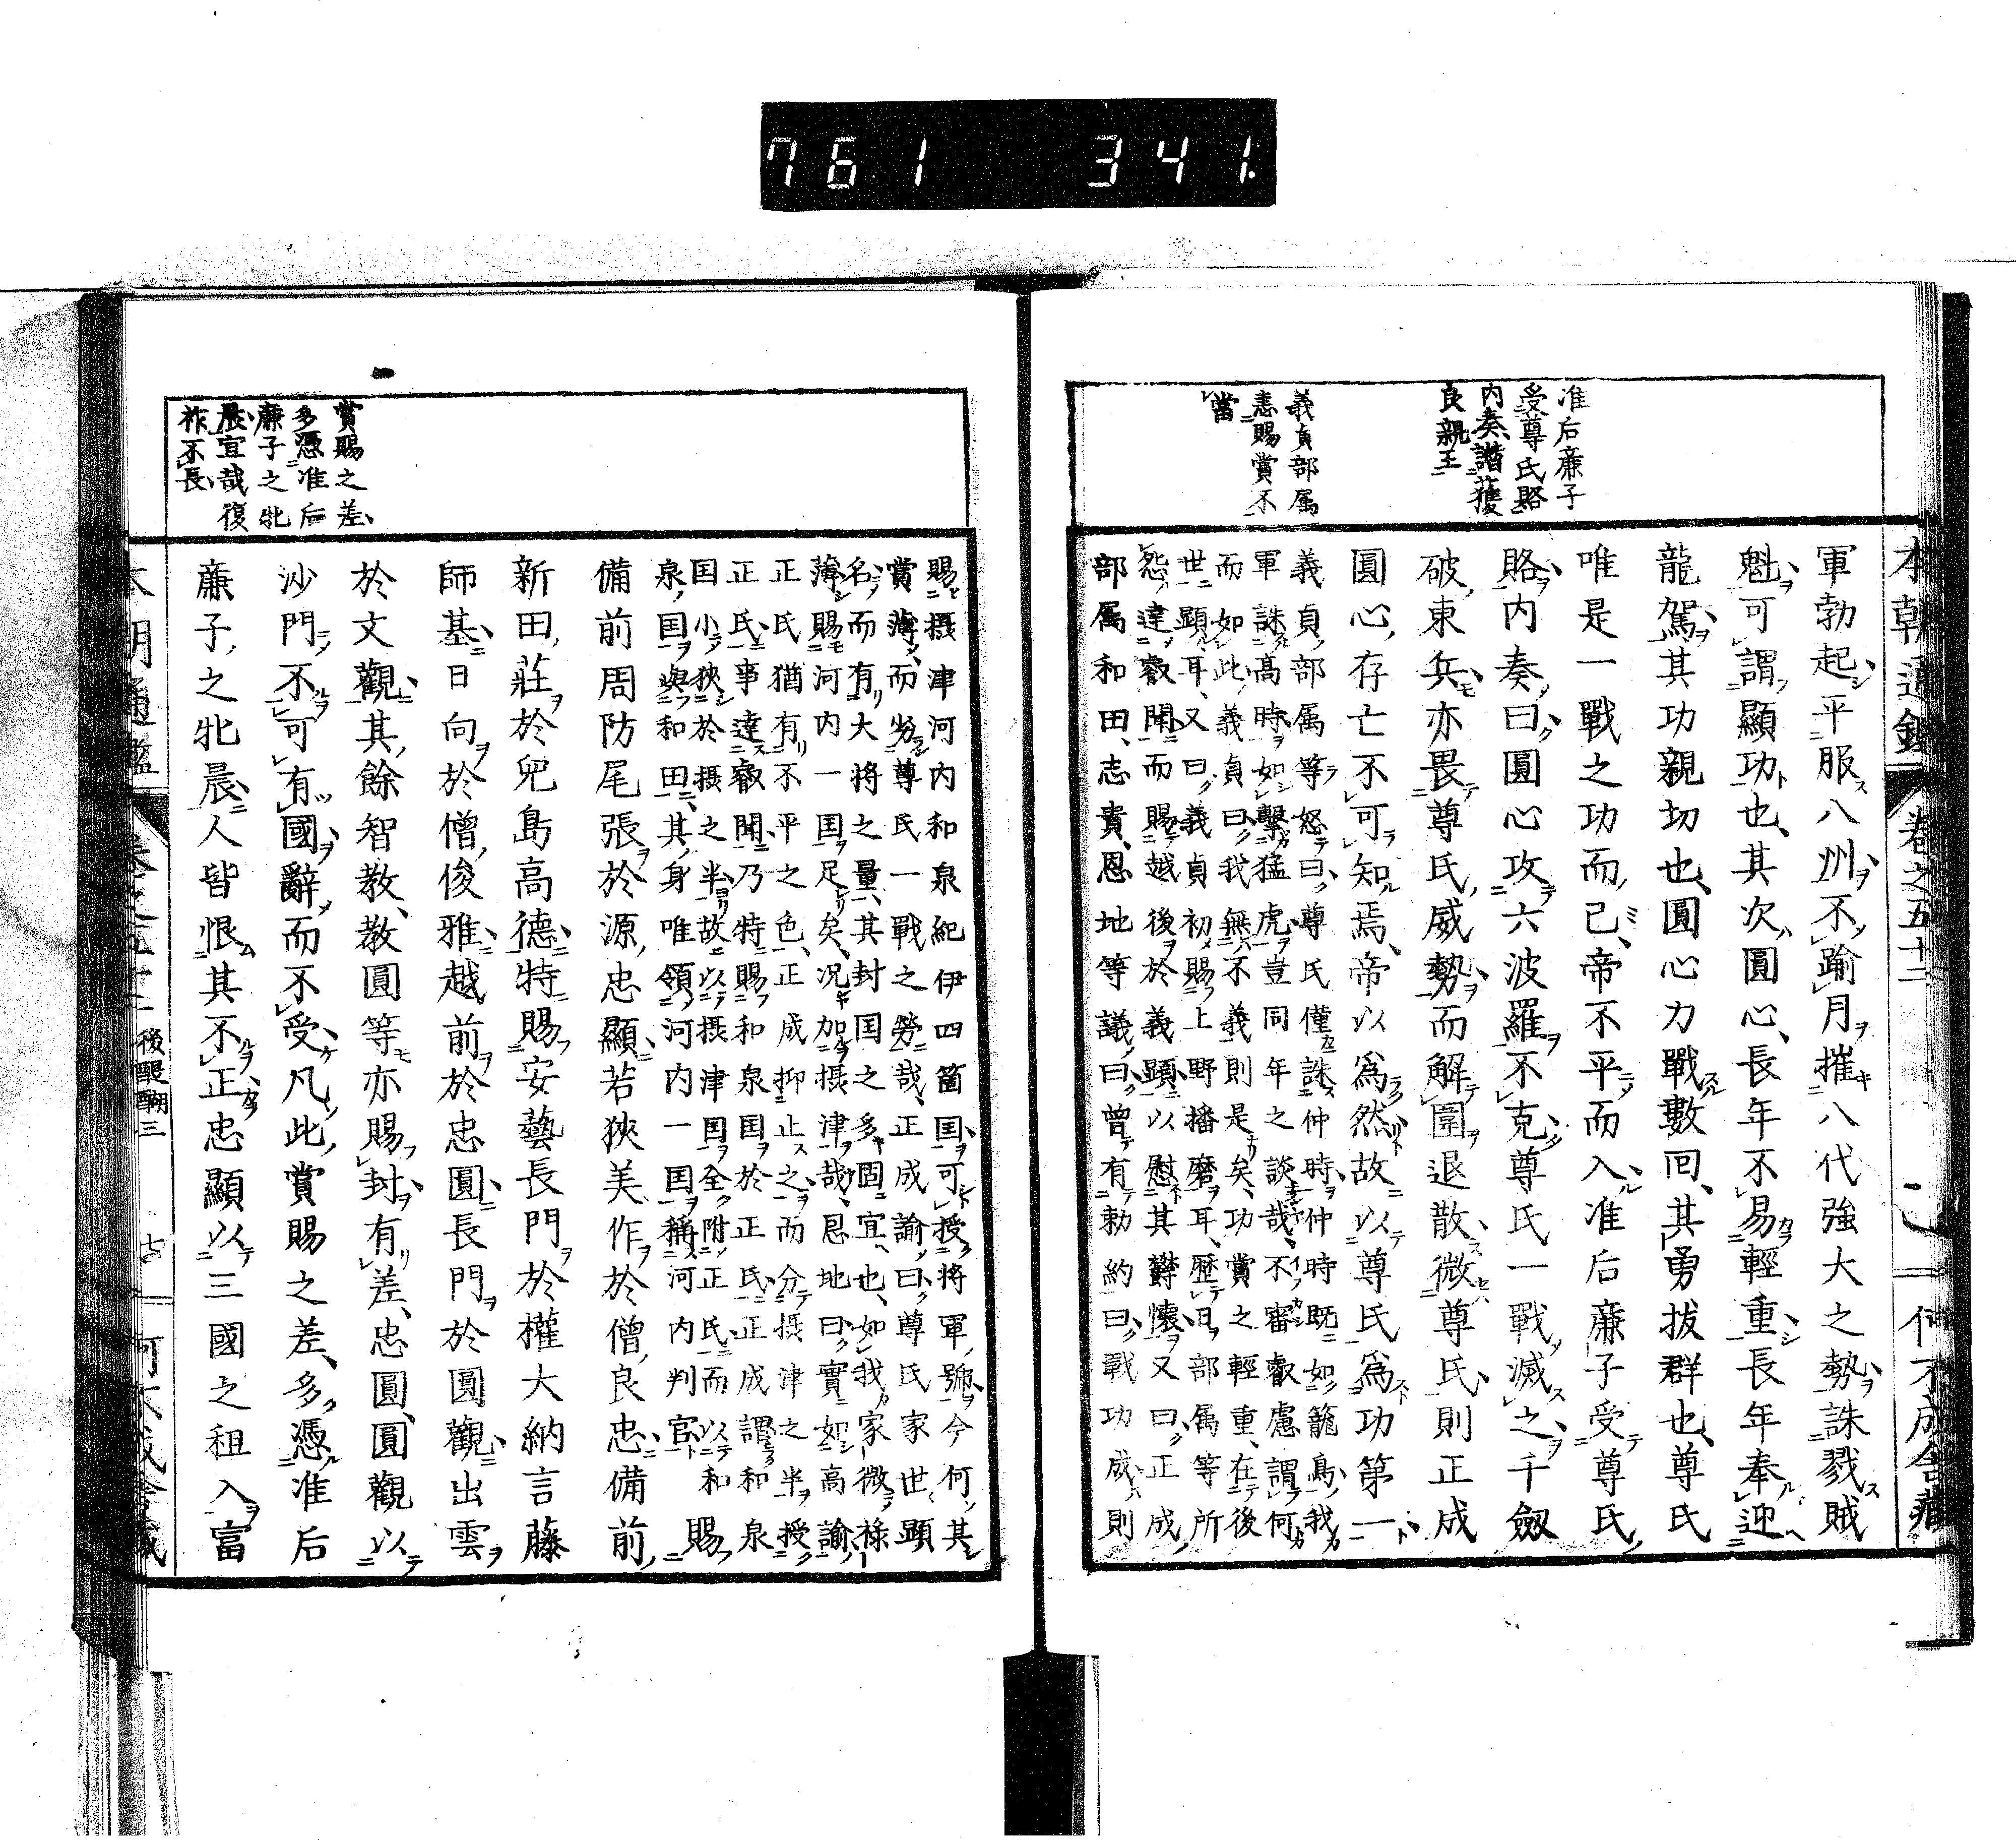 761 341.
本朝通鑑 卷之五十二
准后廉子
受尊氏賂
内奏譖護
良親王
義貞部属
恚賜賞不
當
軍勃起平服八州不踰月摧八代強大之勢誅戮賊
魁可謂顯功也其次圓心長年不易輕重長年奉迎
龍駕其功親切也圓心力戰數回其勇拔群也尊氏
唯是一戰之功而已帝不平而入准后廉子受尊氏
賂内奏曰圓心攻六波羅不克尊氏一戰滅之千劔
破東兵亦畏尊氏威勢而解圍退散微尊氏則正成
圓心存亡不可知焉帝以爲然故以尊氏爲功第一
義貞部属等怒曰尊氏僅誅仲時仲時既如籠鳥我
軍誅高時如撃猛虎豈同年之談哉不審叡慮謂何
而如此義貞曰我無不義則是矣功賞之輕重在後
世顯耳又曰義貞初賜上野播磨耳歴日部属等所
怨達叡聞而賜越後於義顯以慰其欝懷又曰正成
部属和田志貴恩地等議曰曾有勅約曰戰功成則
賜摂津河内和泉紀伊四箇国可授将軍號今何其
賞薄而労尊氏一戰之勞哉正成諭曰尊氏家世顯
名而有大将之量其封国之多固宜也如我家微禄
薄賜河内一国足矣况加摂津哉恩地曰實如高諭
正氏猶有不平之色正成抑止之而分摂津之半授
正氏事達叡聞乃特賜和泉国於正氏正成謂和泉
国小狹於摂之半故以摂津国全附正氏而以和
泉国與和田其身唯領河内一国稱河内判官賜
備前周防尾張於源忠顯若狹美作於僧良忠備前
新田莊於兒島高德特賜安藝長門於權大納言藤
師基日向於僧俊雅越前於忠圓長門於圓觀出雲
於文觀其餘智教教圓等亦賜封有差忠圓圓觀以
沙門不可有國辭而不受凡此賞賜之差多憑准后
廉子之牝晨人皆恨其不正忠顯以三國之租入富
賞賜之差
多憑准后
廉子之牝
晨宜哉復
祚不長
後醍醐三
七